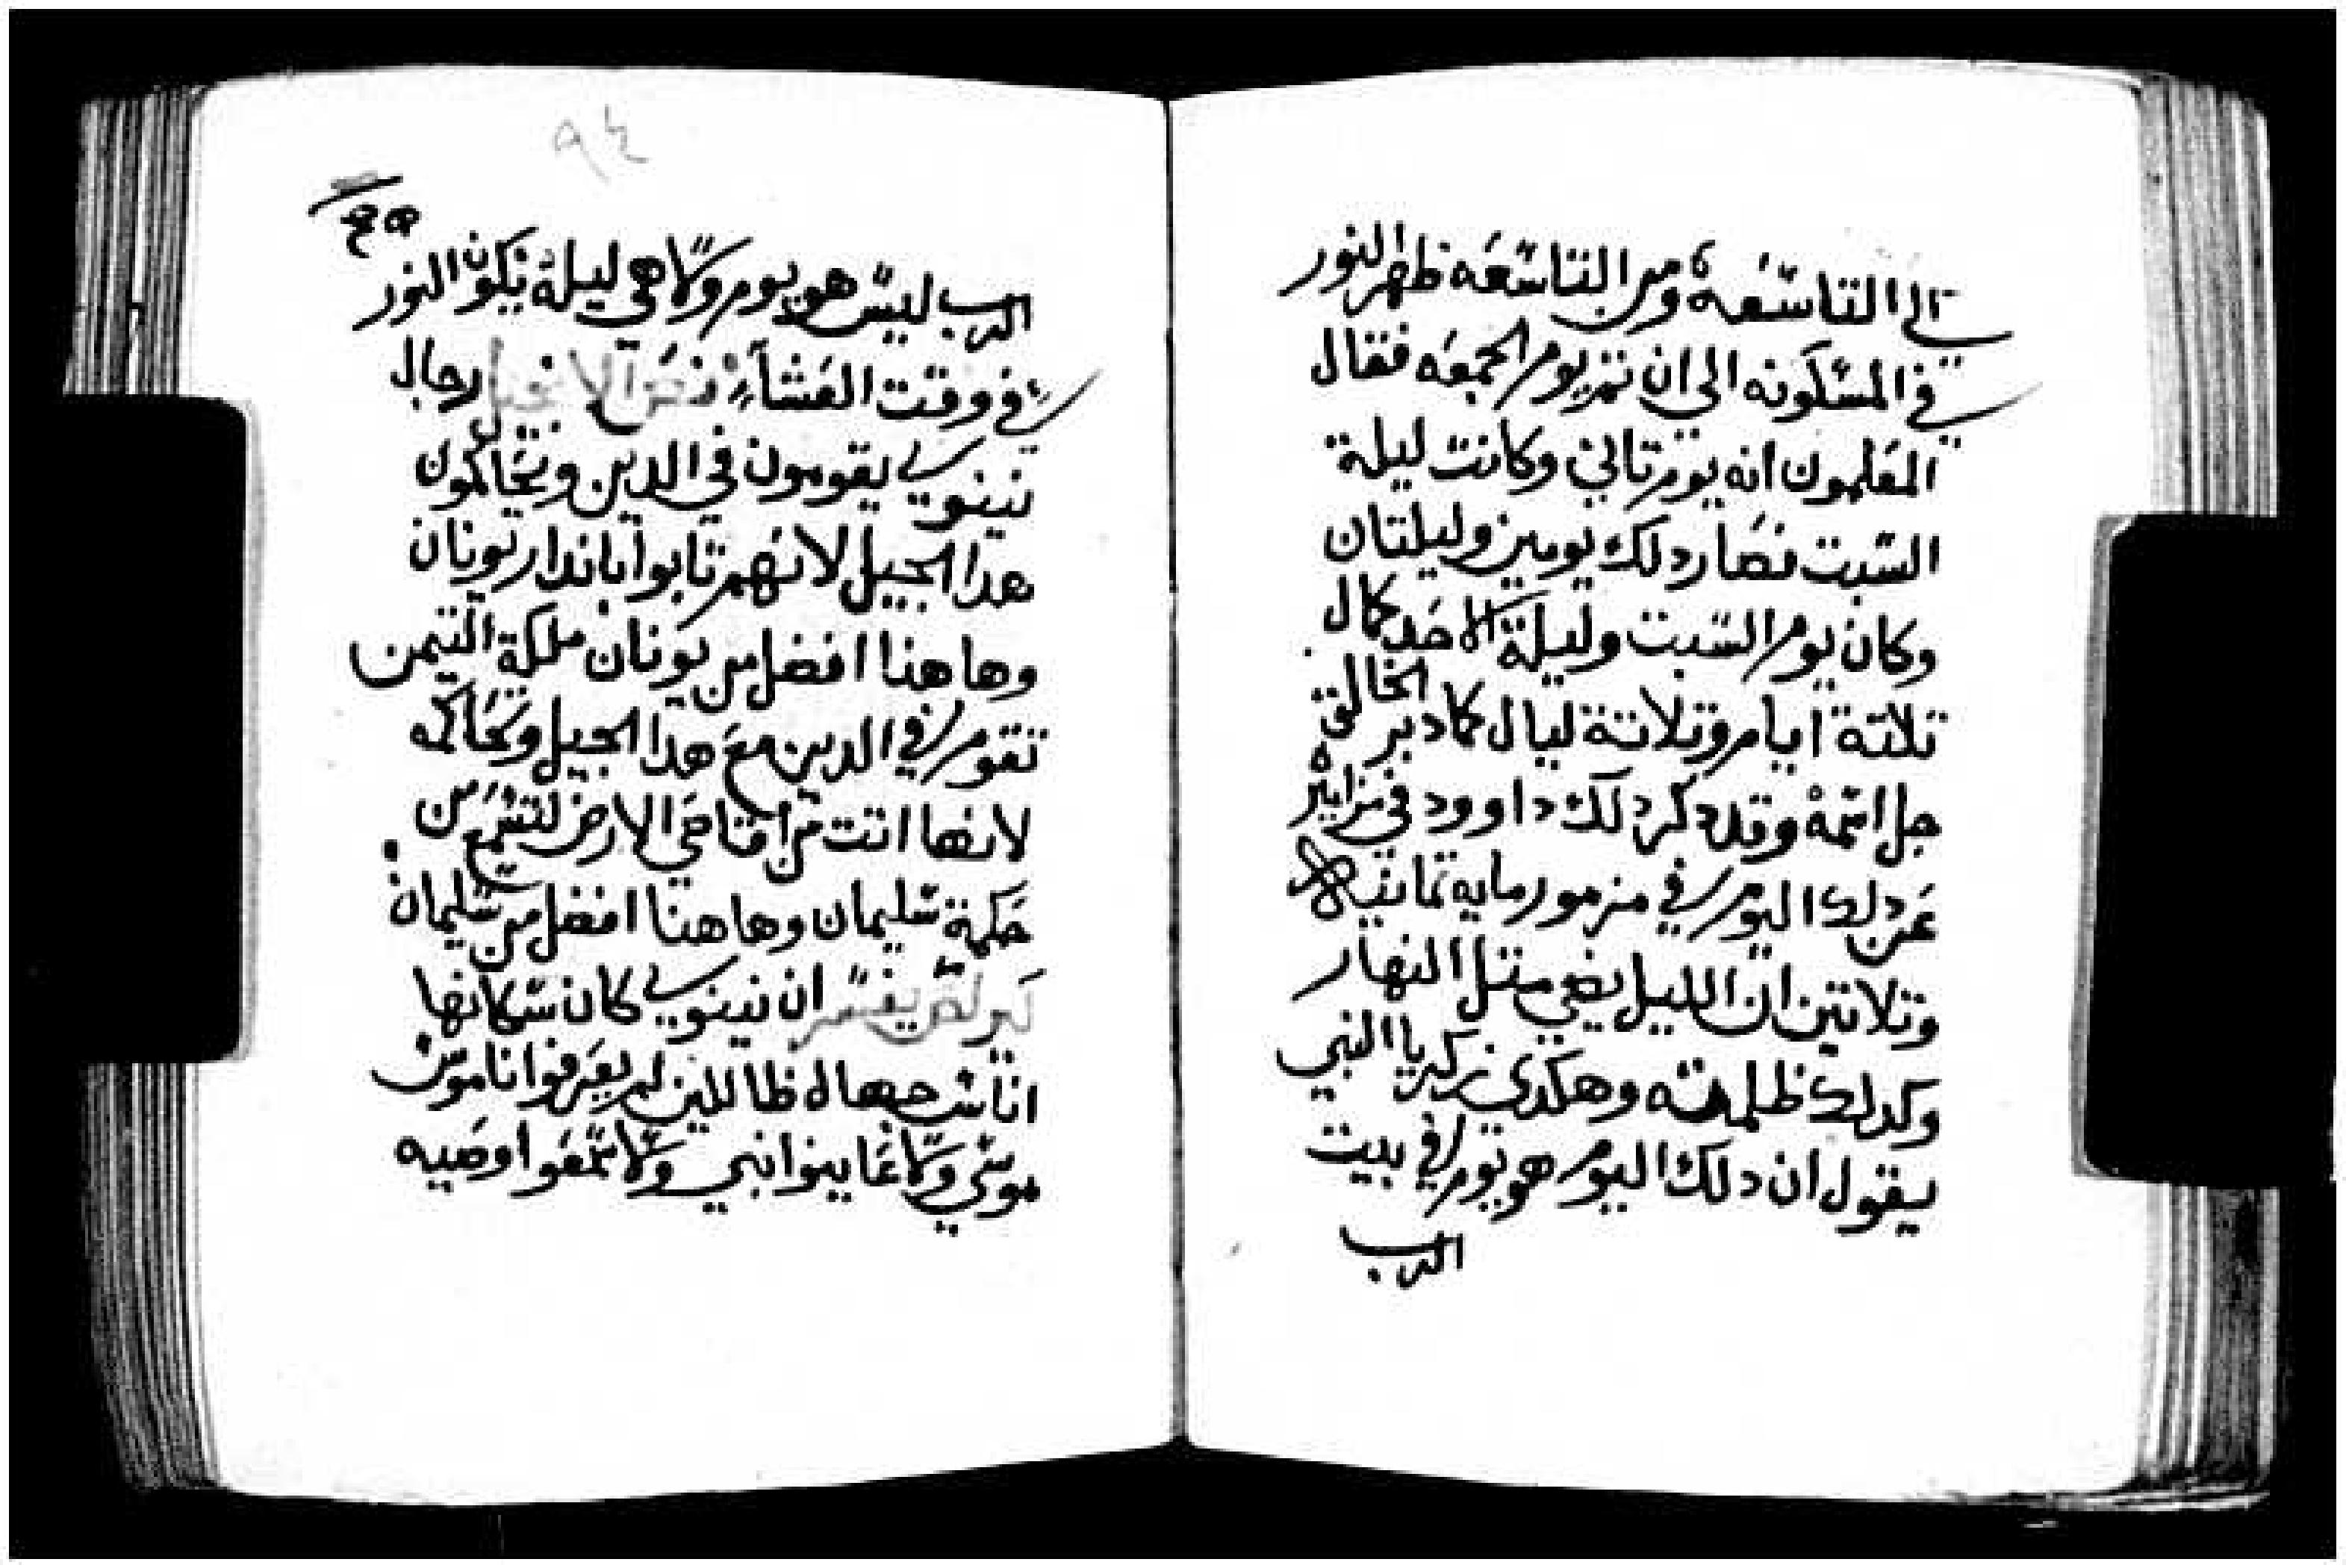 الي التاسعه ومن التاسعه ظهر النور
في المسكونه الي ان تم يوم الجمعه فقال
المعلمون انه يوم تاني وكانت ليلة
السبت فصار دلك يومين وليلتان
وكان يوم السبت وليلة الاحد كمال
تلاتة ايام وتلاتة ليال كما دبر الخالق
جل اسمه وقد دكر دلك داوود في مزاميره
عن دلك اليوم في مزمور مايه تمانيه
وتلاتين ان الليل يضي متل النهار
وكدلك ظلمته وهكدي زكريا النبي
يقول ان دلك اليوم هو يوم في بيت
الرب
٩٤
الرب ليس هو يوم ولا هي ليلة يكون النور
في وقت العشاء نص الانجيل رجال
نينوي يقومون في الدين ويحاكمون
هدا الجيل لانهم تابوا باندار يونان
وها هنا افضل من يونان ملكة التيمن
تقوم في الدين مع هدا الجيل وتحاكمه
لانها اتت من اقاصي الارض لتسمع من
حكمة سليمان وها هنا افضل من سليمان
يفسر ان نينوي كان سكانها
اناس جهاله ظاللين لم يعرفوا ناموس
موسي ولا عاينوا نبي ولا سمعوا وصيه